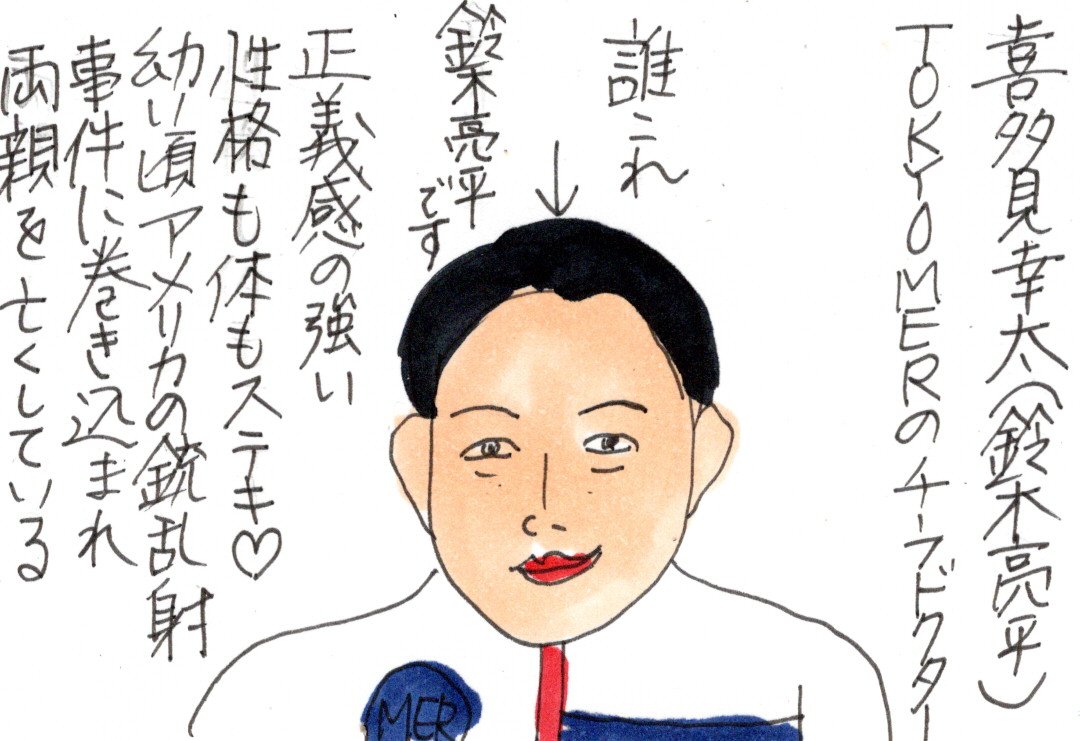 喜多見幸太(鈴木亮平)
TOKYOMERのチーフドクター
誰これ
↓
鈴木亮平です
正義感の強い
性格も体もステキ♡
幼い頃アメリカの銃乱射
事件に巻き込まれ
両親を亡くしている
MER